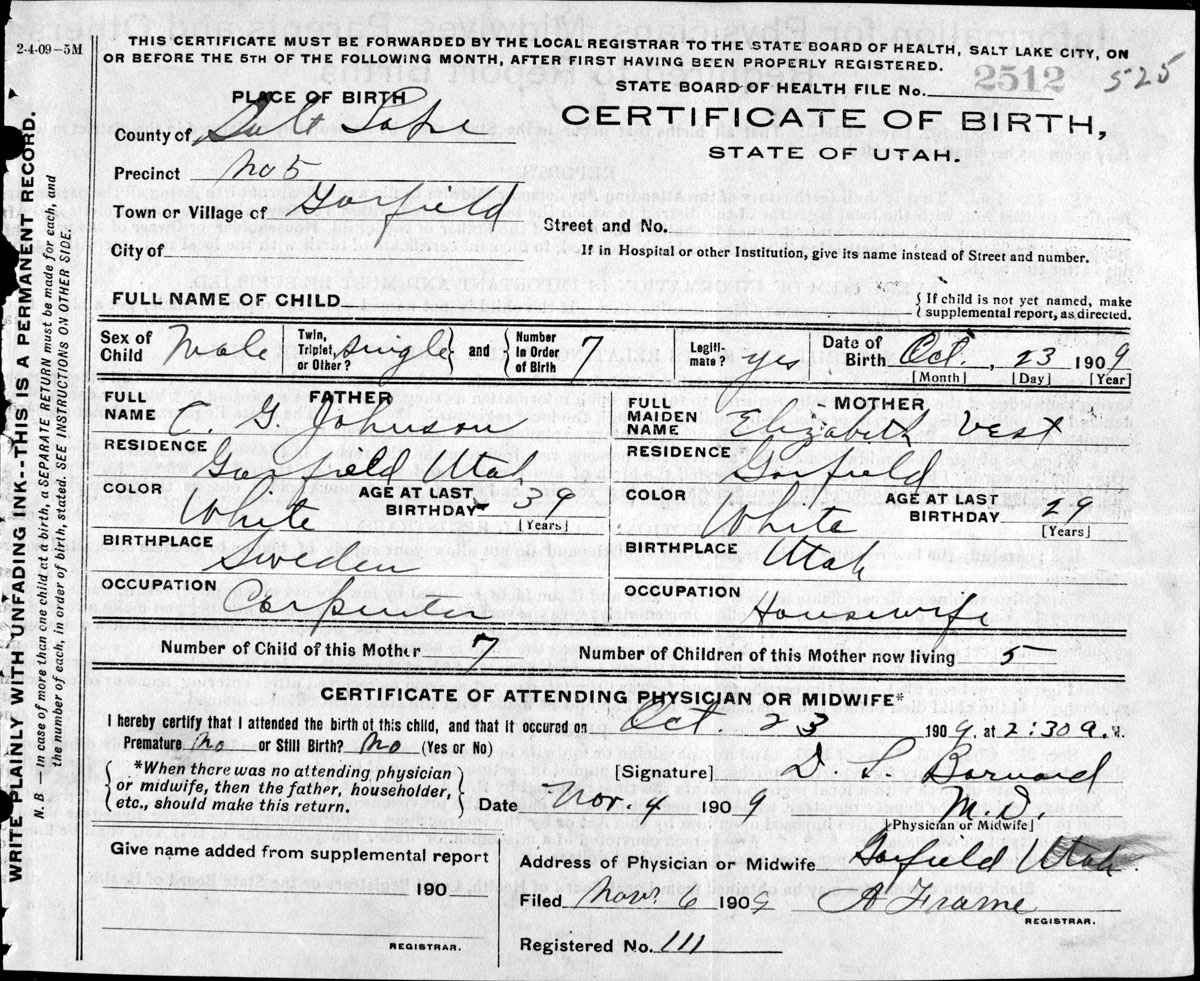 2-4-09-5M
THIS CERTIFICATE MUST BE FORWARDED BY THE LOCAL REGISTRAR TO THE STATE BOARD OF HEALTH, SALT LAKE CITY, ON
OR BEFORE THE 5TH OF THE FOLLOWING MONTH, AFTER FIRST HAVING BEEN PROPERLY REGISTERED.
STATE BOARD OF HEALTH FILE No. 2512 525
PLACE OF BIRTH
CERTIFICATE OF BIRTH,
STATE OF UTAH.
County of Salt Lake
Precinct No 5
Town or Village of Garfield
Street and No.
City of
If in Hospital or other Institution, give its name instead of Street and number.
FULL NAME OF CHILD
{ If child is not yet named, make
supplemental report, as directed.
Sex of Child Male Twin, Triplet, or Other? single } and { Number in Order of Birth 7 Legiti- mate? yes Date of Birth Oct. , 23 1909
[Month] [Day] [Year]
FATHER
FULL NAME C. G. Johnson
RESIDENCE Garfield Utah
COLOR White AGE AT LAST BIRTHDAY 39
[Years]
BIRTHPLACE Sweden
OCCUPATION Carpenter
MOTHER
FULL MAIDEN NAME Elizabeth Vest
RESIDENCE Garfield
COLOR White AGE AT LAST BIRTHDAY 29
[Years]
BIRTHPLACE Utah
OCCUPATION Housewife
Number of Child of this Mother 7 Number of Children of this Mother now living 5
CERTIFICATE OF ATTENDING PHYSICIAN OR MIDWIFE*
I hereby certify that I attended the birth of this child, and that it occured on Oct. 23 1909, at 2:30 a. M.
Premature No or Still Birth? No (Yes or No)
{ *When there was no attending physician
or midwife, then the father, householder,
etc., should make this return. }
[Signature] D. L. Barnard
Date Nov. 4 1909 M.D.
[Physician or Midwife]
Give name added from supplemental report
190
REGISTRAR.
Address of Physician or Midwife Garfield Utah.
Filed Nov. 6 1909 A Frame
REGISTRAR.
Registered No. 111
WRITE PLAINLY WITH UNFADING INK--THIS IS A PERMANENT RECORD.
N. B — In case of more than one child at a birth, a SEPARATE RETURN must be made for each, and
the number of each, in order of birth, stated. SEE INSTRUCTIONS ON OTHER SIDE.